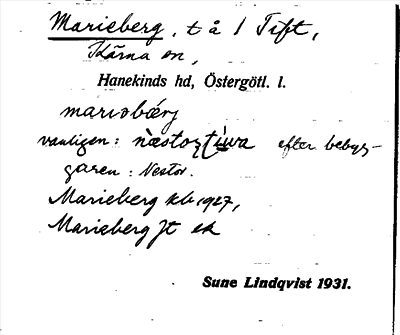 Marieberg, t å 1 Tift,
Kärna sn,
Hanekinds hd, Östergötl. l.
mariobærj
vanligen: næstoṛtiwa efter bebyg-
garen: Nestor.
Marieberg kb 1927,
Marieberg Jt ek
Sune Lindqvist 1931.